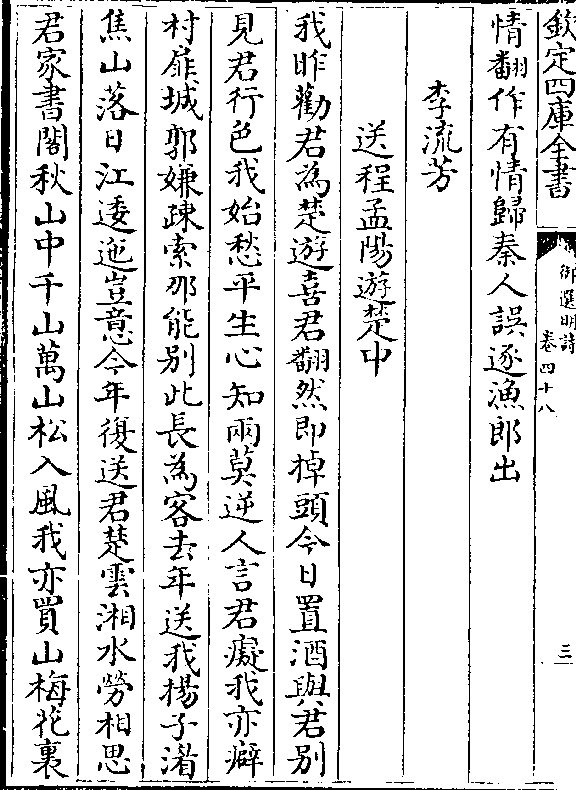 欽定四庫全書
御選明詩
卷四十八
三
情翻作有情歸秦人誤逐漁郎出
李流芳
送程孟陽遊楚中
我昨勸君為楚遊喜君翻然即掉頭今日置酒與君别
見君行色我始愁平生心知兩莫逆人言君癡我亦癖
村雇城郭嫌疎索那能别此長為客去年送我楊子渚
焦山落日江逶迤豈意今年復送君楚雲湘水勞相思
君家書閣秋山中千山萬山松入風我亦買山梅花裏